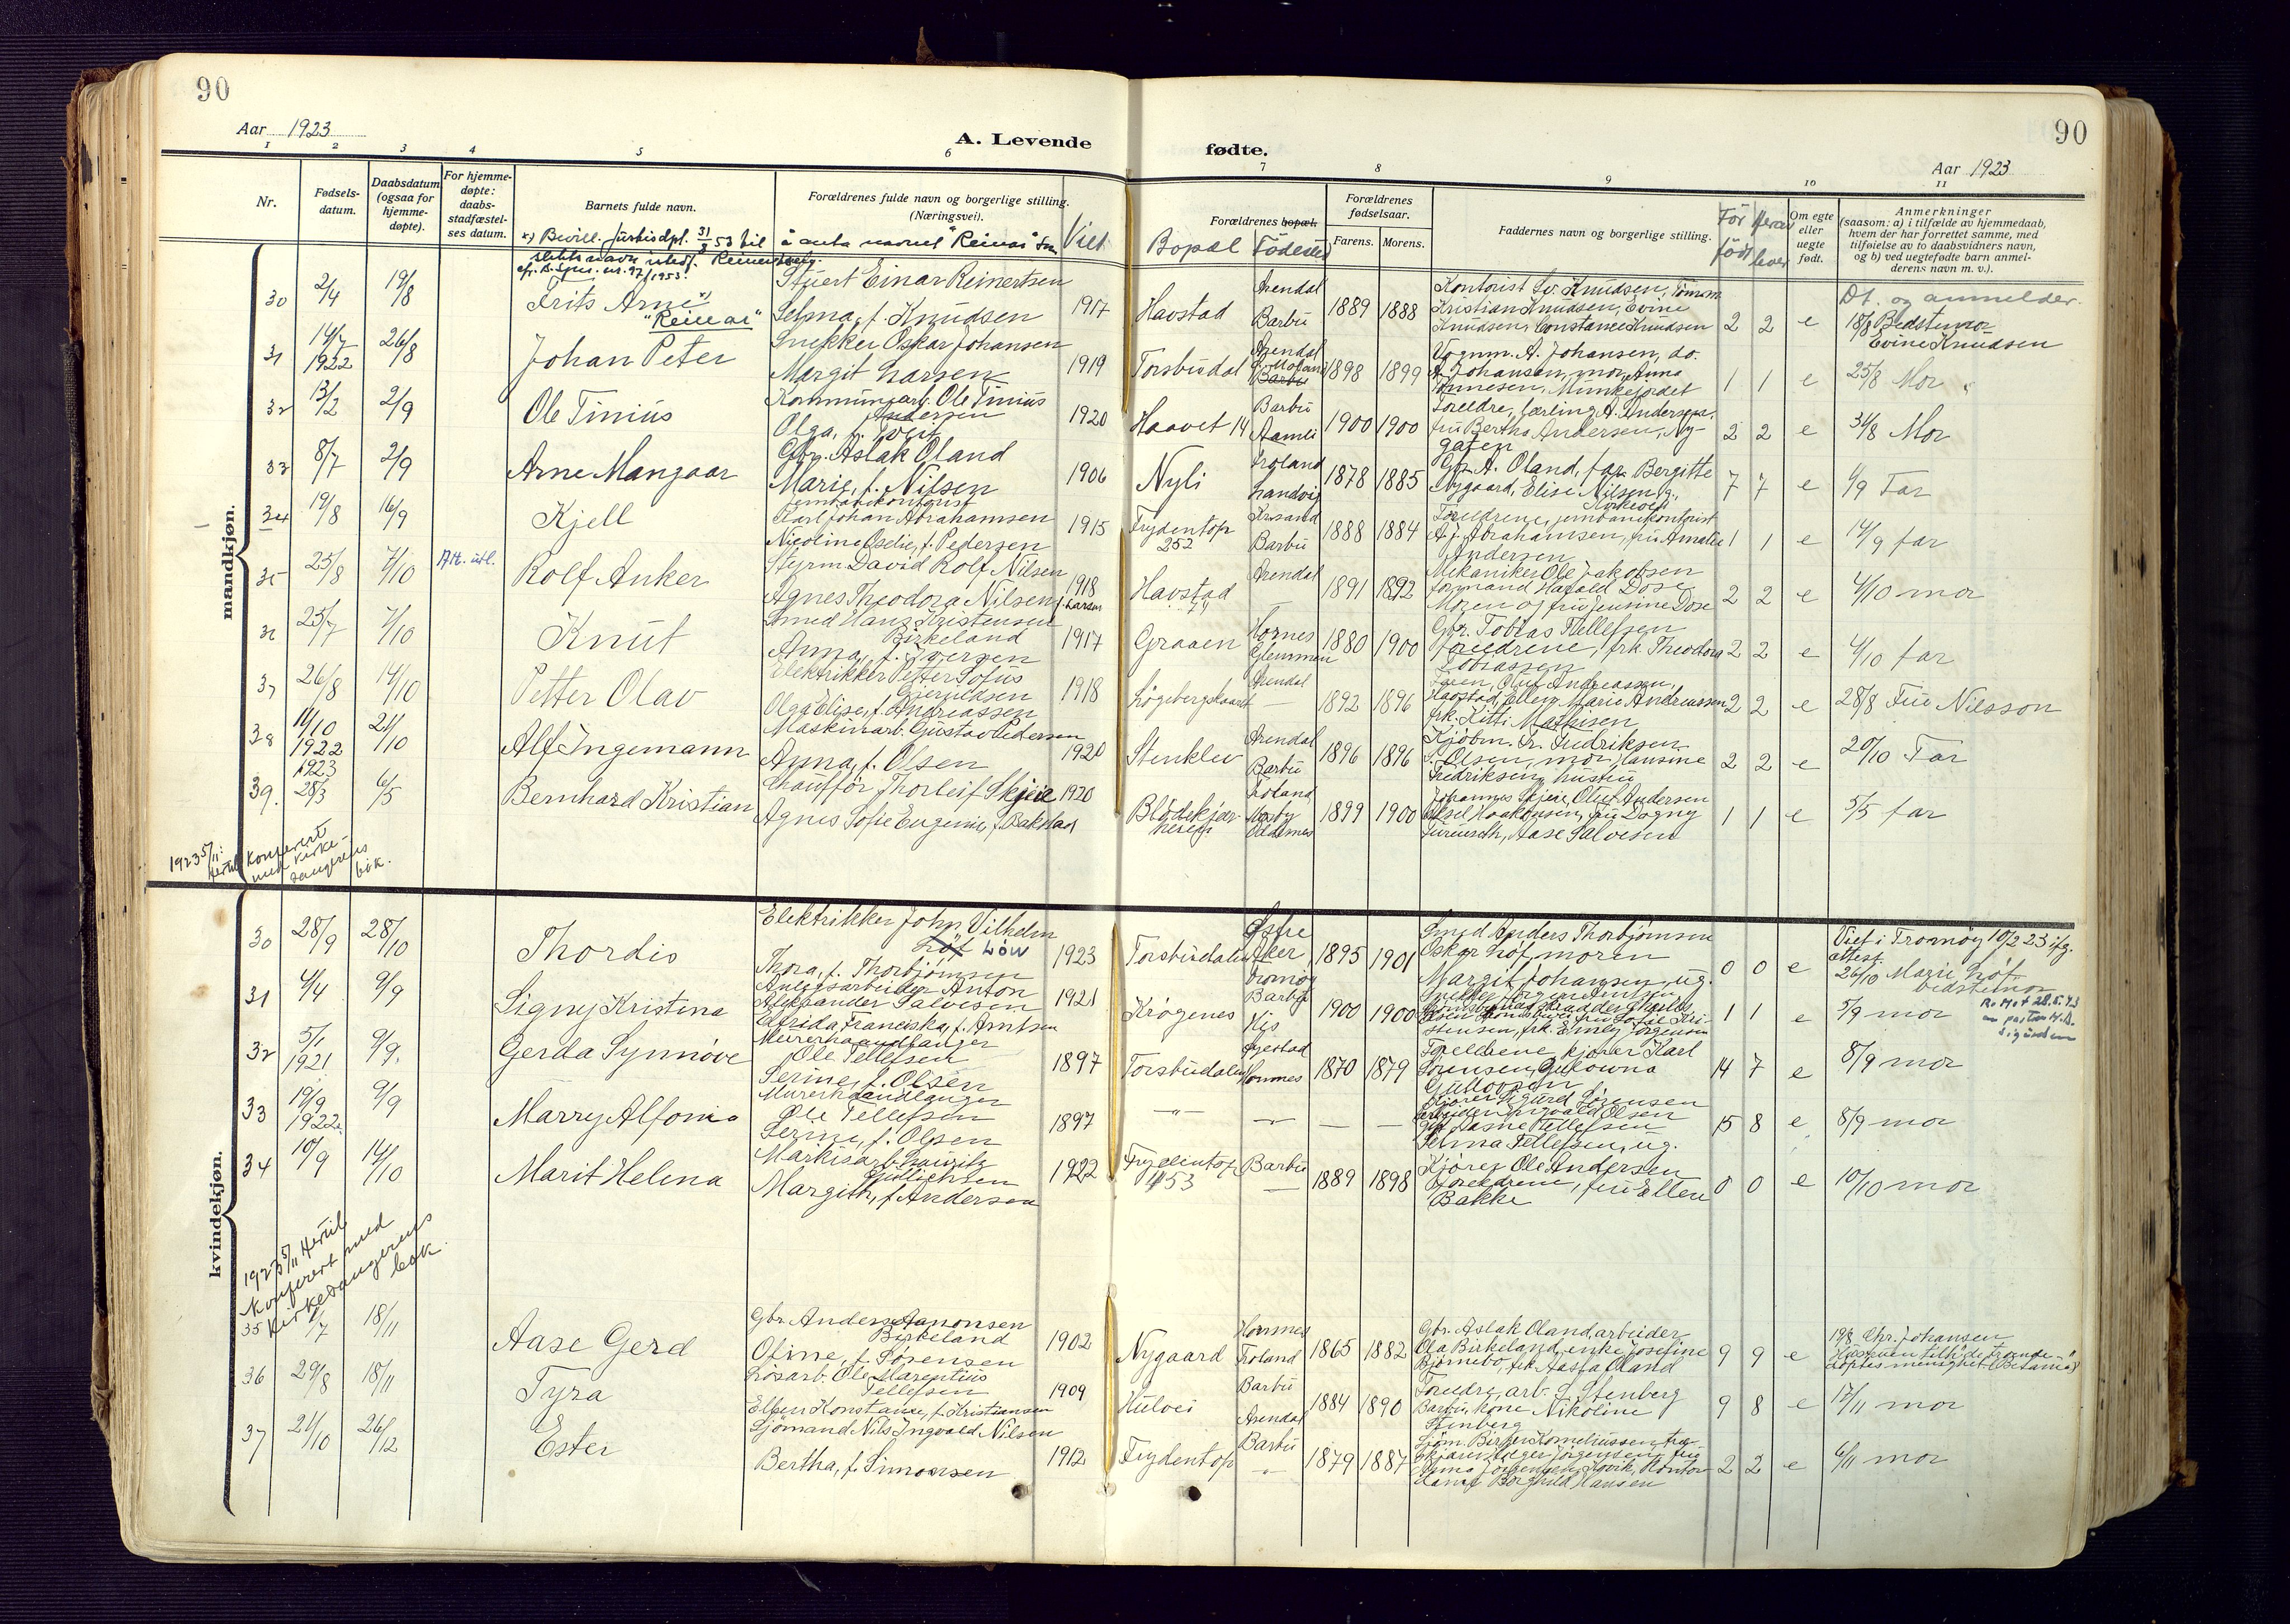 90
90
Aar 1923
A. Levende
fødte.
Aar 1923
1 2 3 4 5 6 7 8 9 10 11
Nr.
Fødsels-
datum.
Daabsdatum
(ogsaa for
hjemme-
døpte).
For hjemme-
døpte:
daabs-
stadfæstel-
ses datum.
Barnets fulde navn.
Forældrenes fulde navn og borgerlige stilling.
(Næringsvei).
Viet
Forældrenes bopæl.
Bopæl Födested
Forældrenes
fødselsaar.
Farens. Morens.
Faddernes navn og borgerlige stilling.
Før født
Herav lever
Om egte
eller
uegte
født.
Anmerkninger
(saasom: a) i tilfælde av hjemmedaab,
hvem der har forrettet samme, med
tilføielse av to daabsvidners navn,
og b) ved uegtefødte barn anmel-
derens navn m. v.).
x) Bevill. Justisdpl. 31/8 53 til å anta navnet "Reimar" som
mandkjøn.
30 2/4 19/8
Frits Arne x)
"Reimar"
Stuert Einar Reinertsen
Selma, f. Knudsen
1917 Havstad
Arendal
Barbu
1889 1888
Kontorist Sv. Knudsen, Tömm.
Kristian Knudsen, Evine
Knudsen, Constance Knudsen
2 2 e
Dt. og anmelder.
18/8 Bedstemor
Evine Knudsen
31 14/7 1922 26/8
Johan Peter
Snekker Oskar Johansen
Margit Larsen
1919 Torsbudal
Arendal
Barbu
1898 1899
Vognm. A. Johansen, do.
A. Johansen, mor, Anna
Tönnesen, Munkefjordet
1 1 e
25/8 Mor
32 13/2 2/9
Ole Tinius
Kommunearb. Ole Tinius
Andersen
Olga, f. Tveit
1920 Haavet 14
Barbu
Aamli
1900 1900
Foreldre, lærling A. Andersen,
fru Bertha Andersen, Ny-
gaten
2 2 e
31/8 Mor
33 8/7 2/9
Arne Mangaar
Gbr. Aslak Oland
Marie, f. Nilsen
1906 Nyli
Froland
Landvig
1878 1885
Gbr. A. Oland, far, Bergitte
Nygaard, Elise Nilsen, g.,
Kirkevei
7 7 e
1/9 Far
34 19/8 16/9
Kjell
Jernbanekontorist
Karl Johan Abrahamsen
Nicoline Oselie, f. Pedersen
1915 Frydentop
252
Krsand
Barbu
1888 1884
Foreldrene, jernbanekontorist
A. J. Abrahamsen, fru Amalie
Andersen
1 1 e
14/9 far
35 25/8 7/10
Att. utl.
Rolf Anker
Styrm. David Rolf Nilsen
Agnes Theodora Nilsen
f. Larsen
1918 Havstad
Arendal
1891 1892
Mekaniker Ole Jakobsen
formand Harald Dose
Moren og fru Jensine Dose
2 2 e
4/10 mor
36 25/7 7/10
Knut
Smed Hans Kristensen
Birkeland
Anna, f. Iversen
1917 Graaen
Hornes
Glemmen
1880 1900
Gbr. Tobias Tellefsen
foreldrene, frk. Theodora
Tobiassen
2 2 e
4/10 far
37 26/8 14/10
Petter Olav
Elektrikker Petter Sofus
Gjeruldsen
Olga Elise, f. Andreassen
1918 Løgebergskaaret
Arendal
1892 1896
Faren, Oluf Andreassen,
Havstad, Ellen Marie Andreassen
frk. Kitti Mathisen
2 2 e
28/8 Fru Nilsson
38 11/10 1922 21/10
Alf Ingemann
Maskinarb. Gustav Pedersen
Anna, f. Olsen
1920 Stenklev
Arendal
Barbu
1896 1896
Kjøbm. Fr. Fredriksen
S. Olsen, mor, Hansine
Fredriksen, hustru
2 2 e
20/10 Far
39. 1923 28/3 6/5
Bernhard Kristian
Chauffør Thorleif Skjeie
Agnes Sofie Eugenie, f. Bakstad
1920 Blödekjær-
heien
Froland
1899 1900
Johannes Skjeie, Oluf Andersen
Aksel Haakonsen, fru Dagny
Jureusch, Aase Salvesen
1 1 e
5/5 far
1923 5/11: Hertil konferert
med kirke-
sangerens
bok.
kvindekjøn.
30 28/9 28/10
Thordis
Elektrikker John Vilhelm
Löf Löw
Thora, f. Thorbjørnsen
1923 Torsbudalen
Østre
Aker
Tromøy
1895 1901
Smed Anders Thorbjørnsen
Oskar Löf, moren
Margit Johansen, ug.
0 0 e
Viet i Tromöy 10/2 23 ifg.
attest.
26/10 Marie Löf
bedstemor
31 4/4 9/9
Signy Kristina
Anlegsarbeider Anton
Aleksander Salvesen
Elfrida Franciska, f. Arntsen
1921 Krøgenes
Barbu
His
1900 1900
1 1 e
5/9 mor
32 5/1 1921 9/9.
Gerda Synnøve
Murerhaandlanger
Ole Tellefsen
Serine, f. Olsen
1897 Torsbudalen
Øyestad
Hommes
1870 1879
Foreldrene, kjører Karl
Sørensen,
14 7 e
8/9 mor
33 19/9 1922 9/9
Marry Alfonia
Murerhandlanger
Ole Tellefsen
Serine, f. Olsen
1897 —"—
Kjører Sigurd Sørensen
arbeider Ingvald Olsen
Selma Tellefsen, ug.
15 8 e
8/9 mor
34 10/9 14/10
Marit Helena
Markisarb. Lauritz
Gullichsen
Margith, f. Andersen
1922 Frydentop
453
Barbu
1889 1898
Kjører Ole Andersen
Foreldrene, fru Ellen
Bakke
0 0 e
10/10 mor
1923 5/11 Hertil
konferert med
kirkesangerens
bok.
35 1/7 18/11
Aase Gerd
Gbr. Anders Aanonsen
Birkeland
Ofine, f. Sørensen
1902 Nygaard
Hornnes
Froland
1865 1882
Gbr. Aslak Oland, arbeider
Ola Birkeland, enke Josefine
Bjørnebo, frk. Aasta Oland
9 9 e
19/8 Chr. Johansen
36 29/8 18/11
Tyra
Løsarb. Ole Marentius
Tellefsen
Ellen Konstanse, f. Kristiansen
1909 Hulvei
Barbu
Arendal
1884 1890
Foreldre, arb. G. Stenberg
Barbu, kone Nikoline
Stenberg
9 8 e
17/11 mor
37 21/10 26/12
Ester
Sjömand Nils Ingvald Nilsen
Bertha, f. Simonsen
1912 Frydentop
Barbu
—"—
1879 1887
Sjøm. Birger Korneliussen,
dame Borghild Hansen
2 2 e
6/11 mor